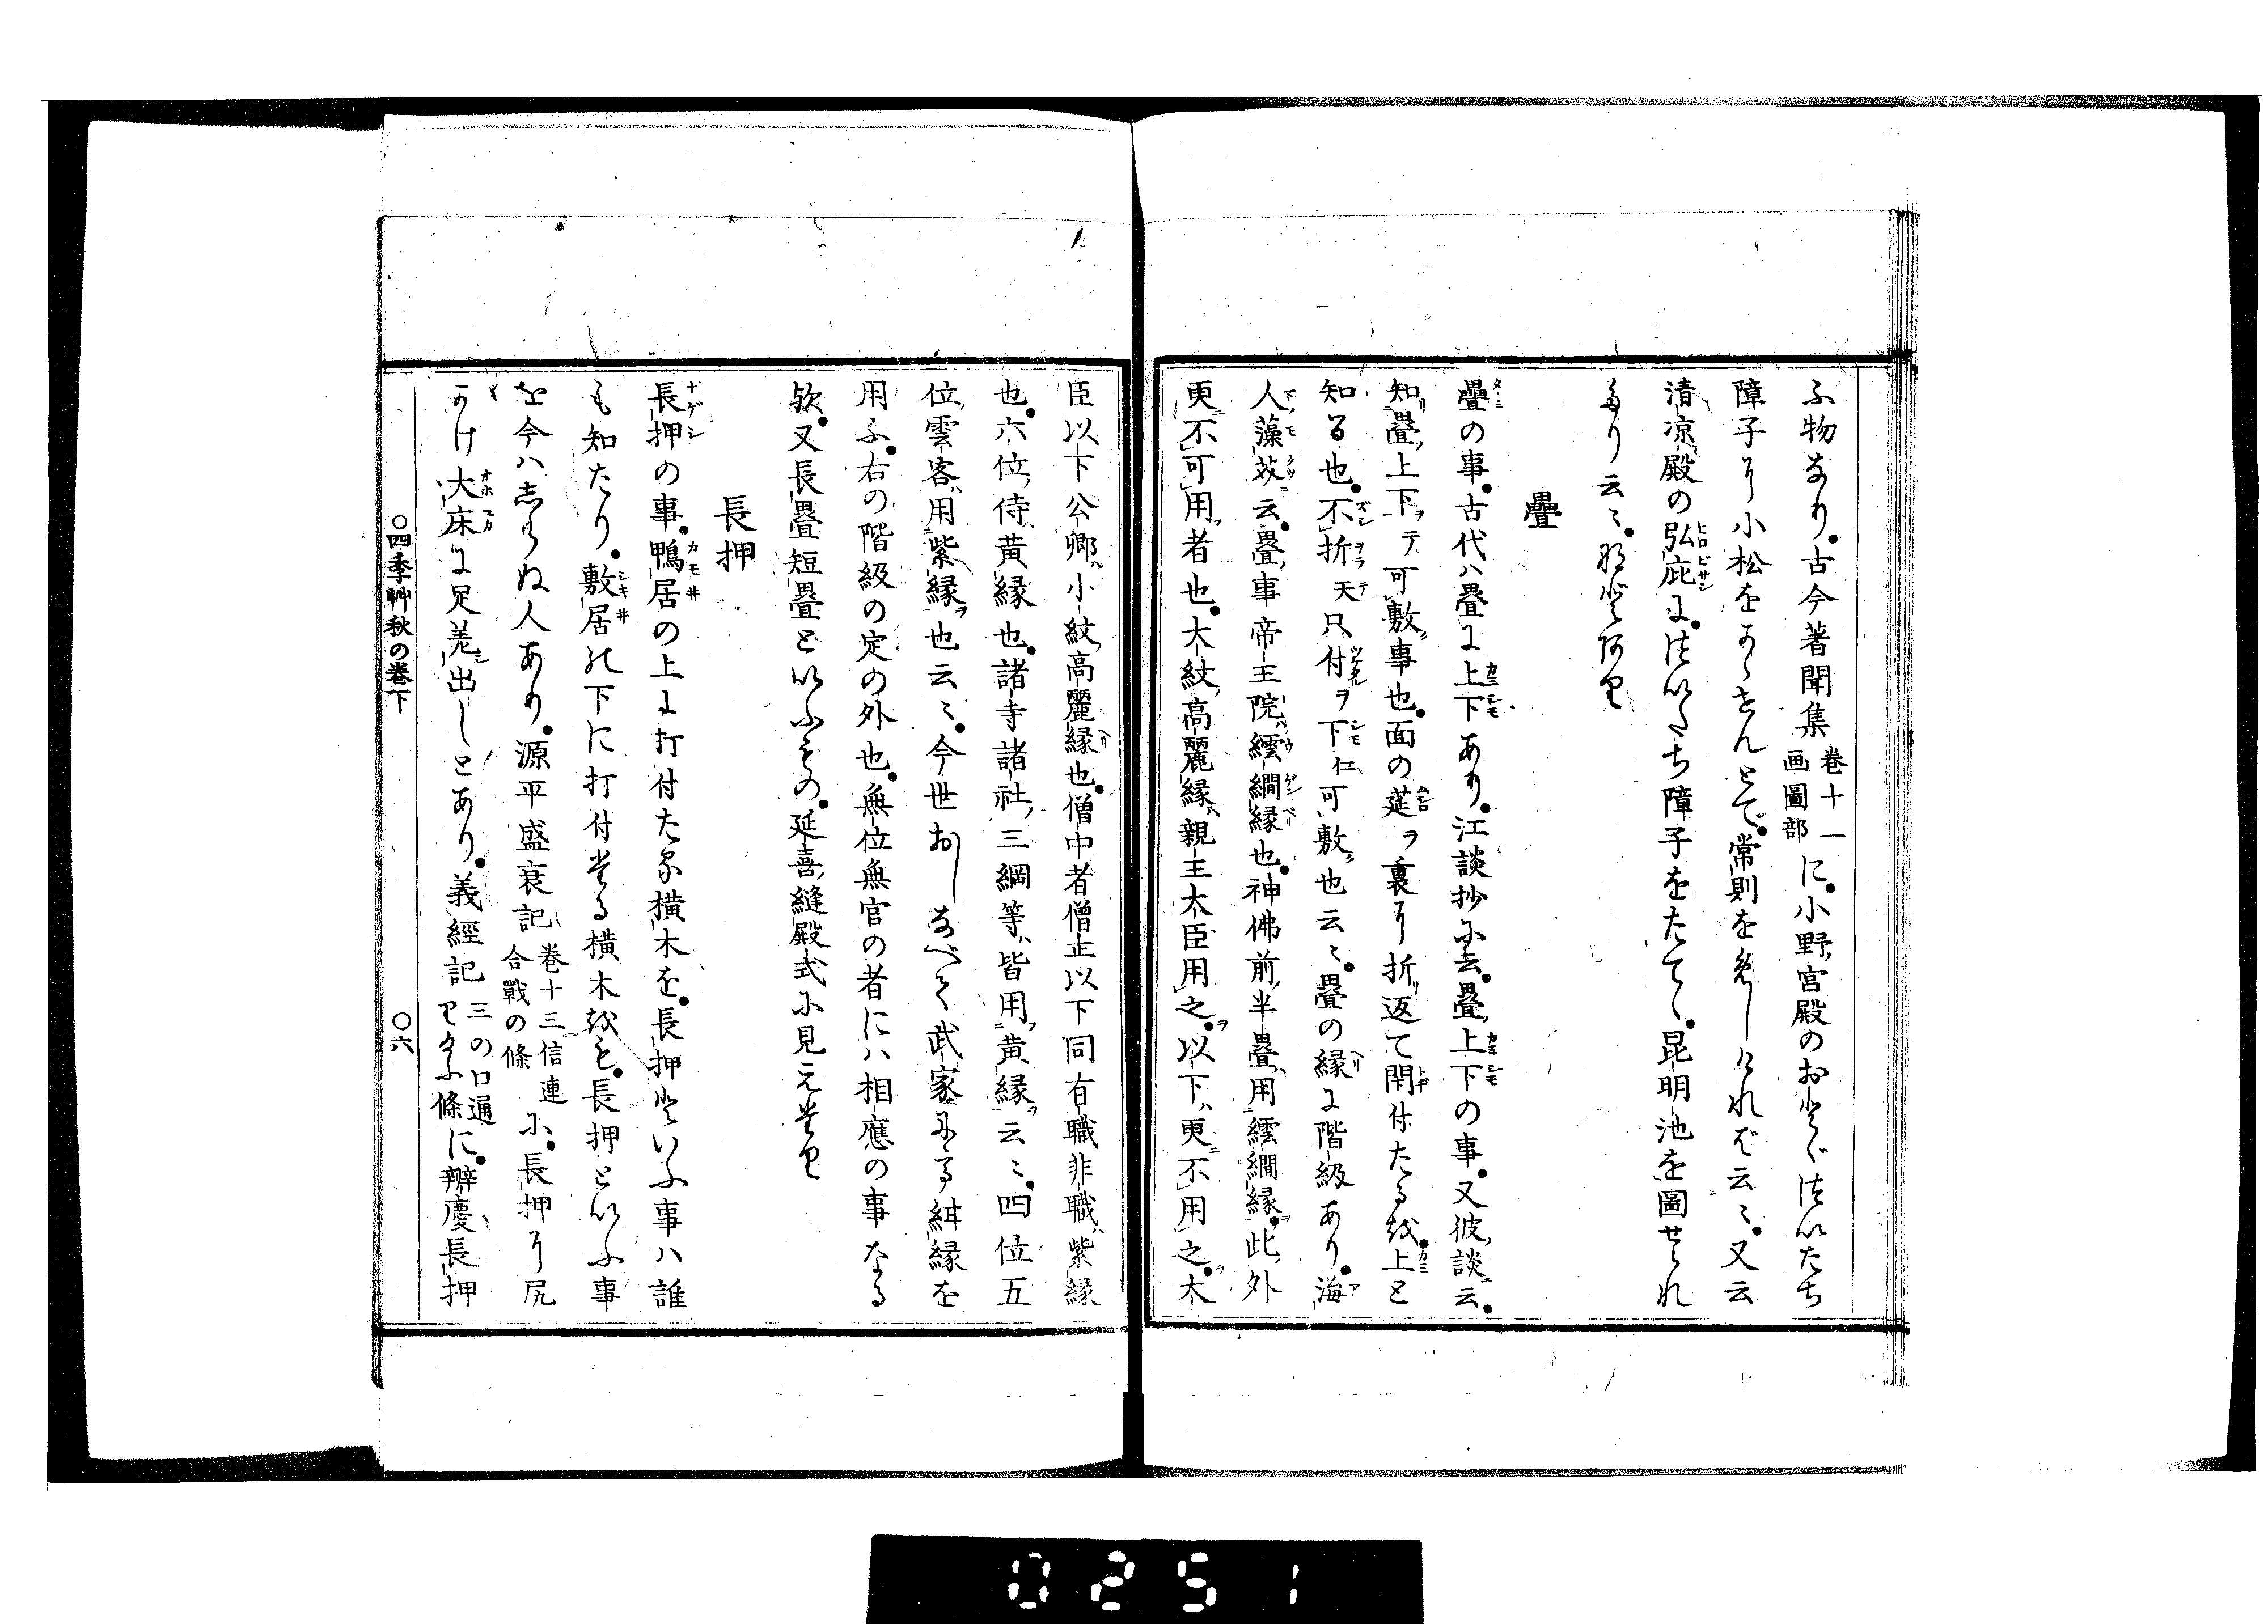 ふ物なり。古今著聞集巻十一画圖部に。小野宮殿のおとゞついたち
障子に小松をかゝせんとて。常則をめしけれバ云〻。又云
清凉殿の弘庇に。ついたち障子をたてゝ。昆明池を圖せられ
たり云〻。などあり
疊
疊の事。古代ハ畳に上下あり。江談抄に云。疊上下の事。又彼談云。
知畳上下ヲテ可敷事也。面の莚ヲ裏に折返て閇付たるを。上と
知る也。不折天只付ヲ下仁可敷也云〻。畳の縁に階級あり。海
人藻芥云。疊事帝王院繧繝縁也。神佛前半疊用繧繝縁。此外
更不可用者也。大紋高麗縁親王大臣用之。以下更不用之。大
臣以下公卿小紋高麗縁也。僧中者僧正以下同有職非職紫縁
也。六位侍黄縁也。諸寺諸社三綱等皆用黄縁云〻。四位五
位雲客用紫縁也云〻。今世おしなべて武家にてる縁を
用ふ。右の階級の定の外也。無位無官の者にハ相應の事なる
歟。又長畳短畳といふもの。延喜縫殿式に見えたり
長押
長押の事。鴨居の上に打付たる横木を。長押といふ事ハ誰
も知たり。敷居の下に打付たる横木をも。長押といふ事
を今ハしらぬ人あり。源平盛衰記巻十三信連合戰の條に。長押に尻
かけ大床に足差出しとあり。義經記三の口通りたふ條に。辨慶長押
○四季艸秋の巻下
○六
0251